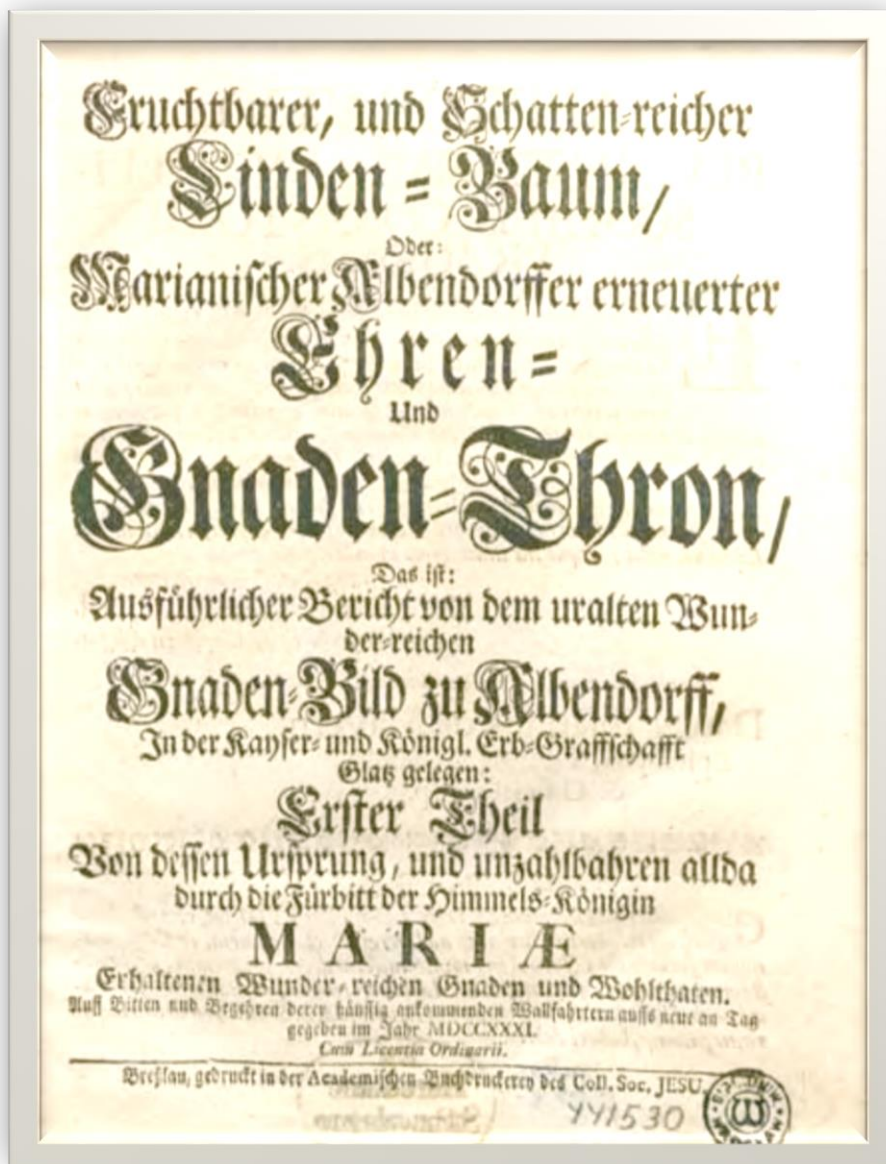 Fruchtbarer, und Schatten-reicher
Linden = Baum,
Oder:
Marianischer Albendorffer erneuerter
Ehren=
Und
Gnaden=Thron,
Das ist:
Ausführlicher Bericht von dem uralten Wun-
der-reichen
Gnaden-Bild zu Albendorff,
In der Kayser- und Königl. Erb-Graffschafft
Glatz gelegen:
Erster Theil
Von dessen Ursprung, und unzahlbahren allda
durch die Fürbitt der Himmels-Königin
MARIÆ
Erhaltenen Wunder-reichen Gnaden und Wohlthaten.
Auff Bitten und Begehren derer häuffig ankommenden Wallfahrtern auffs neue an Tag
gegeben im Jahr MDCCXXXI.
Cum Licentia Ordinarii.
Breßlau, gedruckt in der Academischen Buchdruckerey des Coll. Soc. JESU.
441530